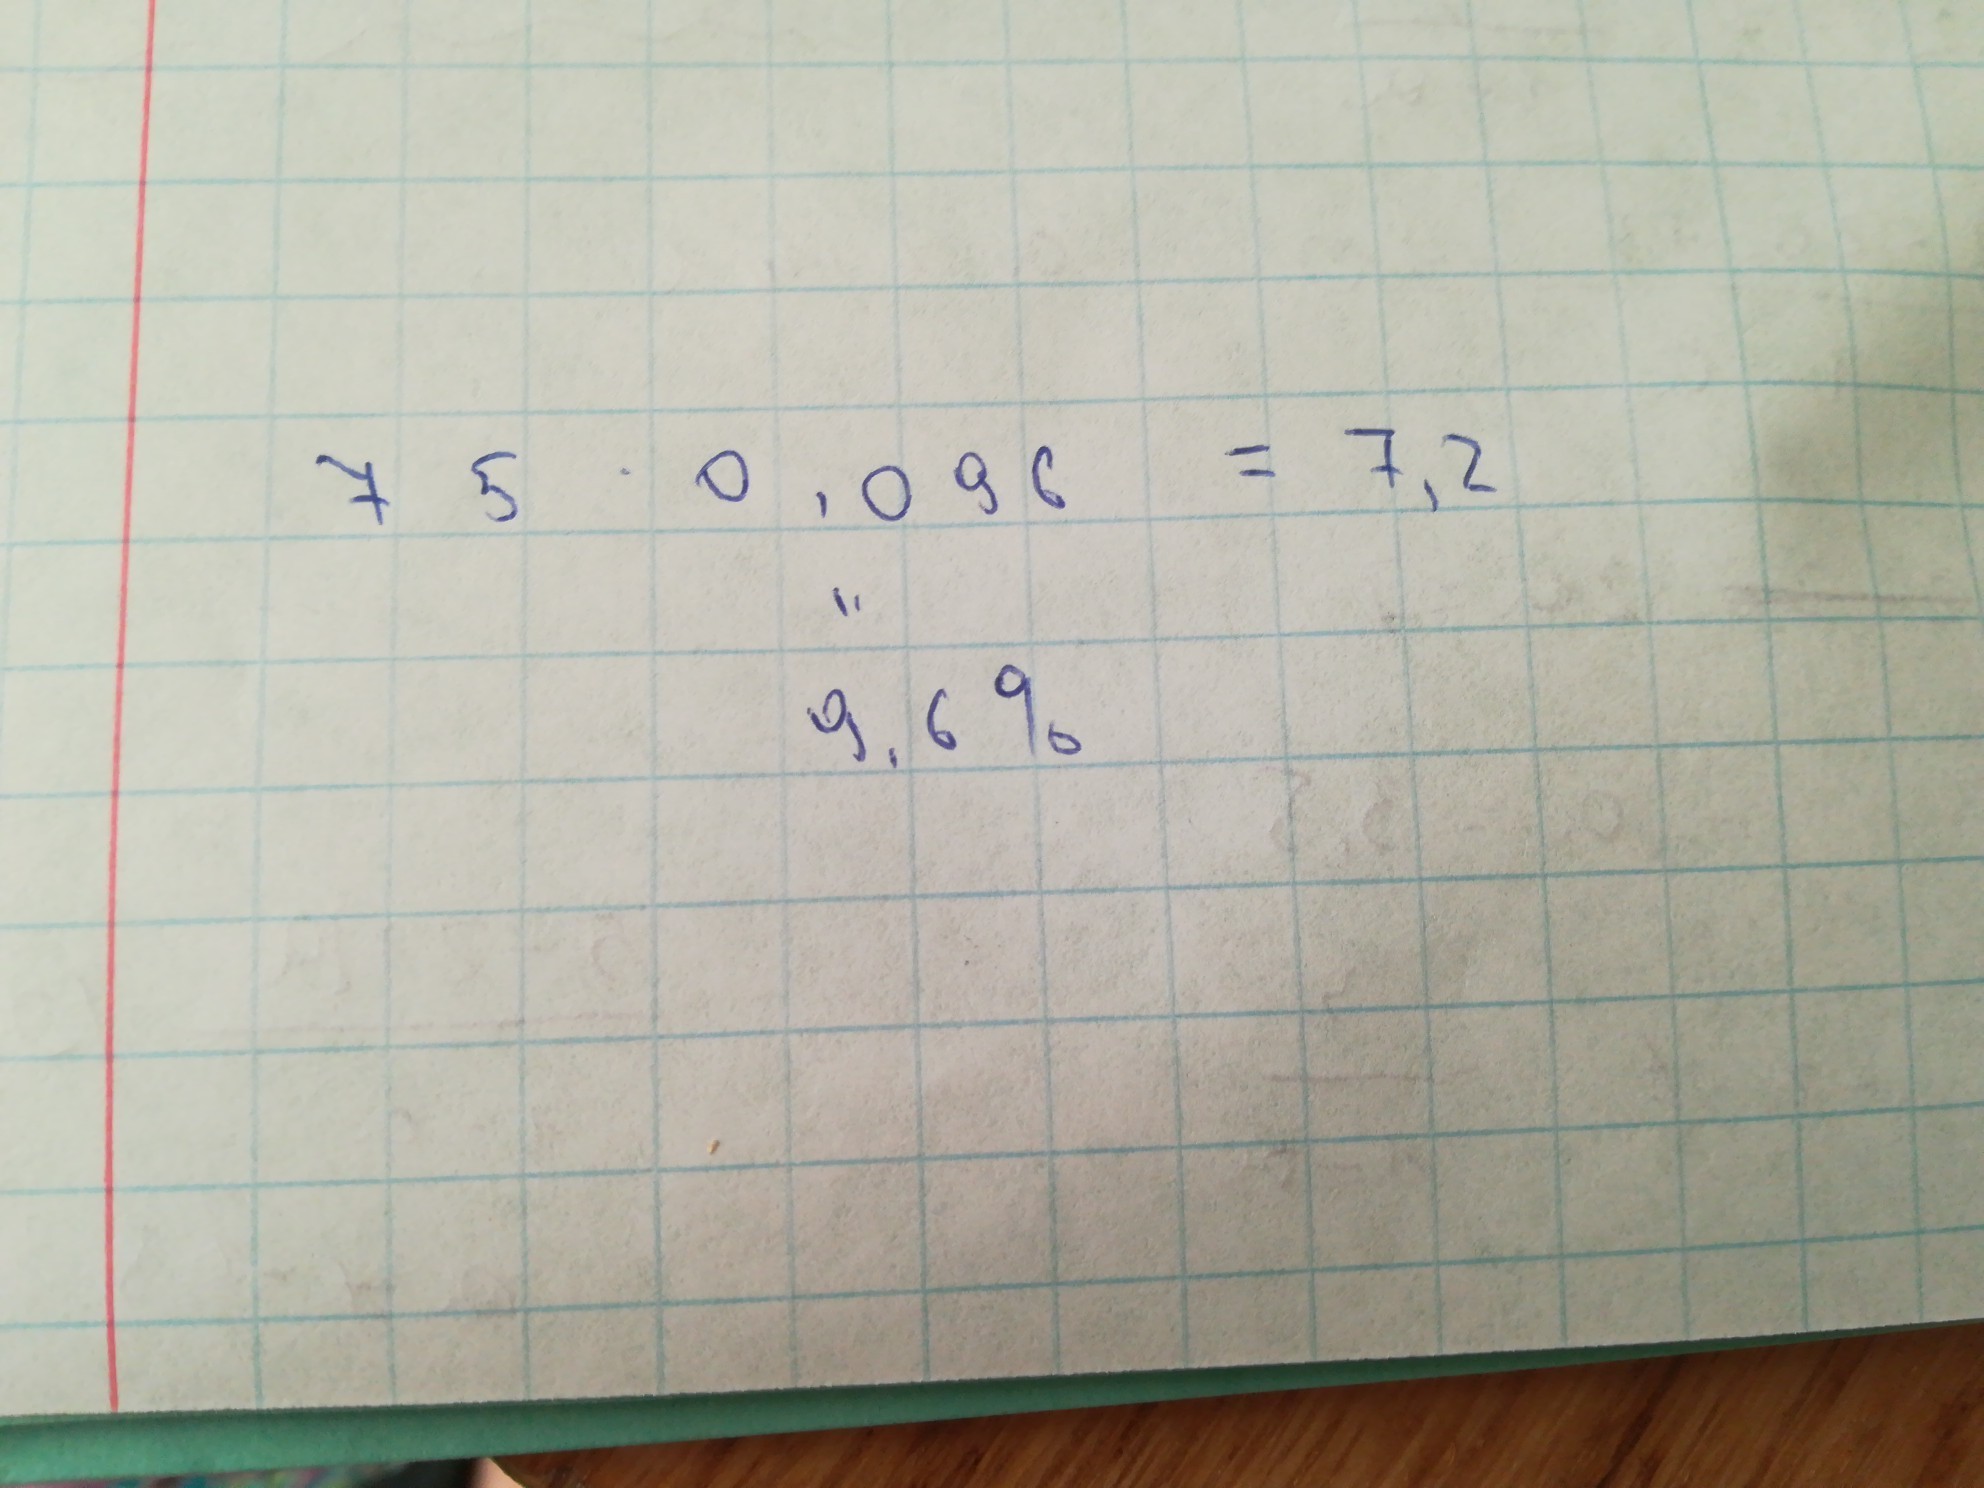 75 · 0,096 = 7,2
"
9,6%